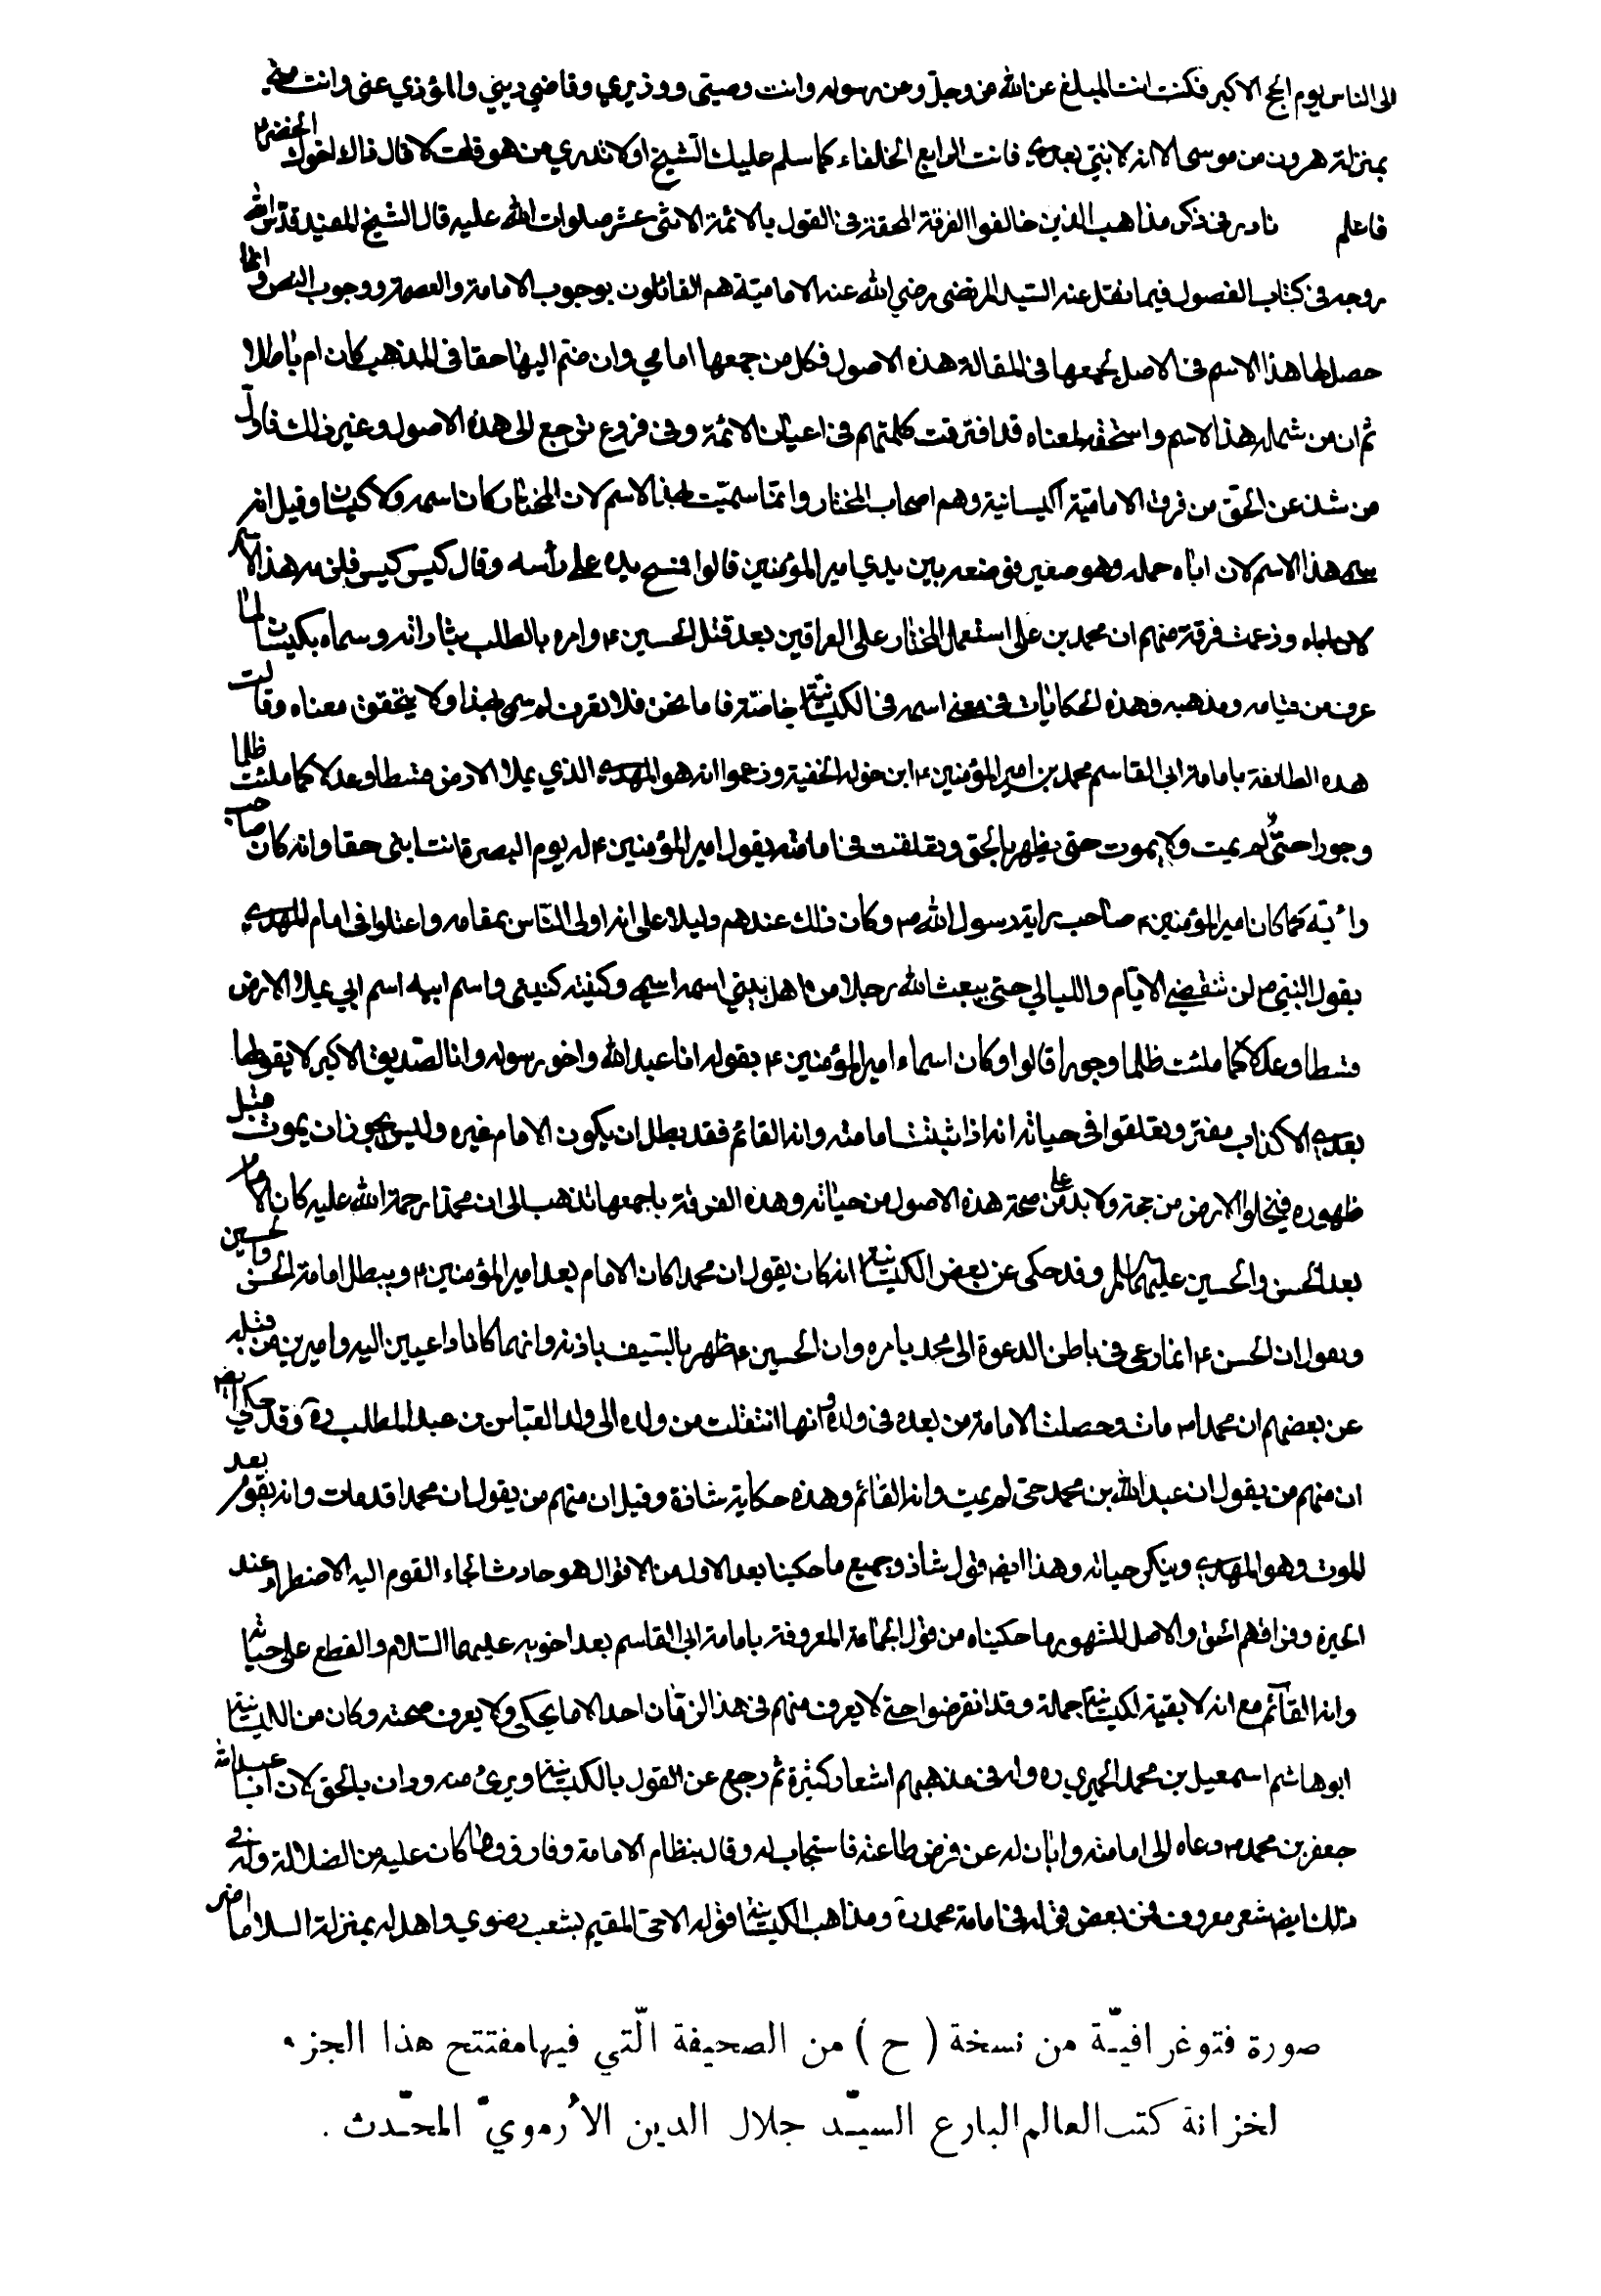 الى الناس يوم الحج الاكبر فكنت انت المبلغ عن الله عز وجل وعن رسوله وانت وصيتى ووزيري وقاضي ديني والمؤذي عنى وانت منى
بمنزلة هرون من موسى الا انه لا نبي بعدى فانت الرابع الخلفاء كما سلم عليك الشيخ اولا تدري من هو قلت لا قال ذاك اخوك الخضر ع
فاعلم نادر فى ذكر مذاهب الذين خالفوا الفرقة المحقة فى القول بالائمة الاثنى عشر صلوات الله عليه قال الشيخ المفيد قدس الله
روحه فى كتاب الفصول فيما نقل عنه السيد المرتضى رضي الله عنه الامامية هم القائلون بوجوب الامامة والعصمة ووجوب النص وانما
حصل لها هذا الاسم فى الاصل لجمعها فى المقالة هذه الاصول فكل من جمعها امامي وان ضم اليها حقا فى المذهب كان ام باطلا
ثم ان من شمله هذا الاسم واستحقه لمعناه قد افترقت كلمتهم فى اعيان الائمة وفى فروع ترجع الى هذه الاصول وغير ذلك فاول
من شذ عن الحق من فرق الامامية الكيسانية وهم اصحاب المختار وانما سميت بهذا الاسم لان المختار كان اسمه ولا كيسان وقيل انه
سمى هذا الاسم لان اباه حمله وهو صغير فوضعه بين يدي امير المؤمنين قالوا فمسح يده على رأسه وقال كيس كيس فلزمه هذا الاسم
وزعمت فرقة منهم ان محمد بن على استعمل المختار على العراقين بعد قتل الحسين ع وامره بالطلب بثاراته وسماه بكيسان لما
عرف من قيامه ومذهبه وهذه الحكايات فى معنى اسمه فى الكيسانية خاصة فاما نحن فلا نعرف له سمى بهذا ولا يتحقق معناه وقالت
هذه الطائفة بامامة ابى القاسم محمد بن امير المؤمنين ع ابن خوله الحنفية وزعموا انه هو المهدى الذي يملا الارض قسطا وعدلا كما ملئت ظلما
وجورا حتى لم يمت ولا يموت حتى يظهر بالحق وتعلقت فى امامته بقول امير المؤمنين ع له يوم البصرة انت ابنى حقا وانه كان صاحب
رأيته كما كان امير المؤمنين ع صاحب راية رسول الله ص وكان ذلك عندهم دليلا على انه اولى الناس بمقامه واعتلوا فى امام المهدي
بقول النبي ص لن تنقضي الايام والليالي حتى يبعث الله رجلا من اهل بيتي اسمه اسمى وكنيته كنيتى واسم ابيه اسم ابي يملا الارض
قسطا وعدلا كما ملئت ظلما وجورا قالوا وكان اسماء امير المؤمنين ع بقوله انا عبد الله واخو رسوله وانا الصديق الاكبر لا يقولها
بعدي الا كذاب مفتر وتعلقوا فى حياته انه اذا ثبتت امامته وانه القائم فقد بطل ان يكون الامام غيره وليس يجوز ان يموت قبل
ظهوره فيخلوا الارض من حجة ولا بد على صحة هذه الاصول من حياته وهذه الفرقة باجمعها تذهب الى ان محمدا رحمة الله عليه كان الامام
بعد الحسن والحسين عليهما السلم وقد حكى عن بعض الكيسانية انه كان يقول ان محمدا كان الامام بعد امير المؤمنين ع ويبطل امامة الحسن والحسين
ويقول ان الحسن ع انما دعى فى باطن الدعوة الى محمد بامره وان الحسين ع ظهر بالسيف باذنه وانهما كانا داعيين اليه واميرين من قبله
عن بعضهم ان محمدا ص مات وحصلت الامامة من بعده فى ولده وانها انتقلت من ولده الى ولد العباس بن عبد المطلب ره وقد حكي ايضا
ان منهم من يقول ان عبد الله بن محمد حي لم يمت وانه القائم وهذه حكاية شاذة وقيل ان منهم من يقول ان محمدا قد مات وانه يقوم بعد
الموت وهو المهدي وينكر حياته وهذا ايضا قول شاذ وجميع ما حكينا بعد الاول من الاقوال هو حادث الجاء القوم اليه الاضطرار عند
الحيرة وفراقهم الحق والاصل المشهور ما حكيناه من قول الجماعة المعروفة بامامة ابى القاسم بعد اخويه عليهما السلام والقطع على حياته
وانه القائم مع انه لا بقية للكيسانية جملة وقد انقرضوا حتى لا يعرف منهم فى هذا الزمان احد الا ما يحكى ولا يعرف صحته وكان من الكيسانية
ابو هاشم اسمعيل بن محمد الحميري ره وله فى مذهبهم اشعار كثيرة ثم رجع عن القول بالكيسانية وبرئ منه ودان بالحق لان ابا عبد الله
جعفر بن محمد ع دعاه الى امامته وابان له عن فرض طاعته فاستجاب له وقال بنظام الامامة وفارق ما كان عليه من الضلالة وله فى
ذلك ايضا شعر معروف فمن بعض قوله فى امامة محمد ره ومذاهب الكيسانية قوله الا حى المقيم بشعب رضوي واهد له بمنزلة السلاما
صورة فتوغرافيّة من نسخة ( ح ) من الصحيفة الّتي فيها مفتتح هذا الجزء
لخزانة كتب العالم البارع السيّد جلال الدين الأرمويّ المحدّث .